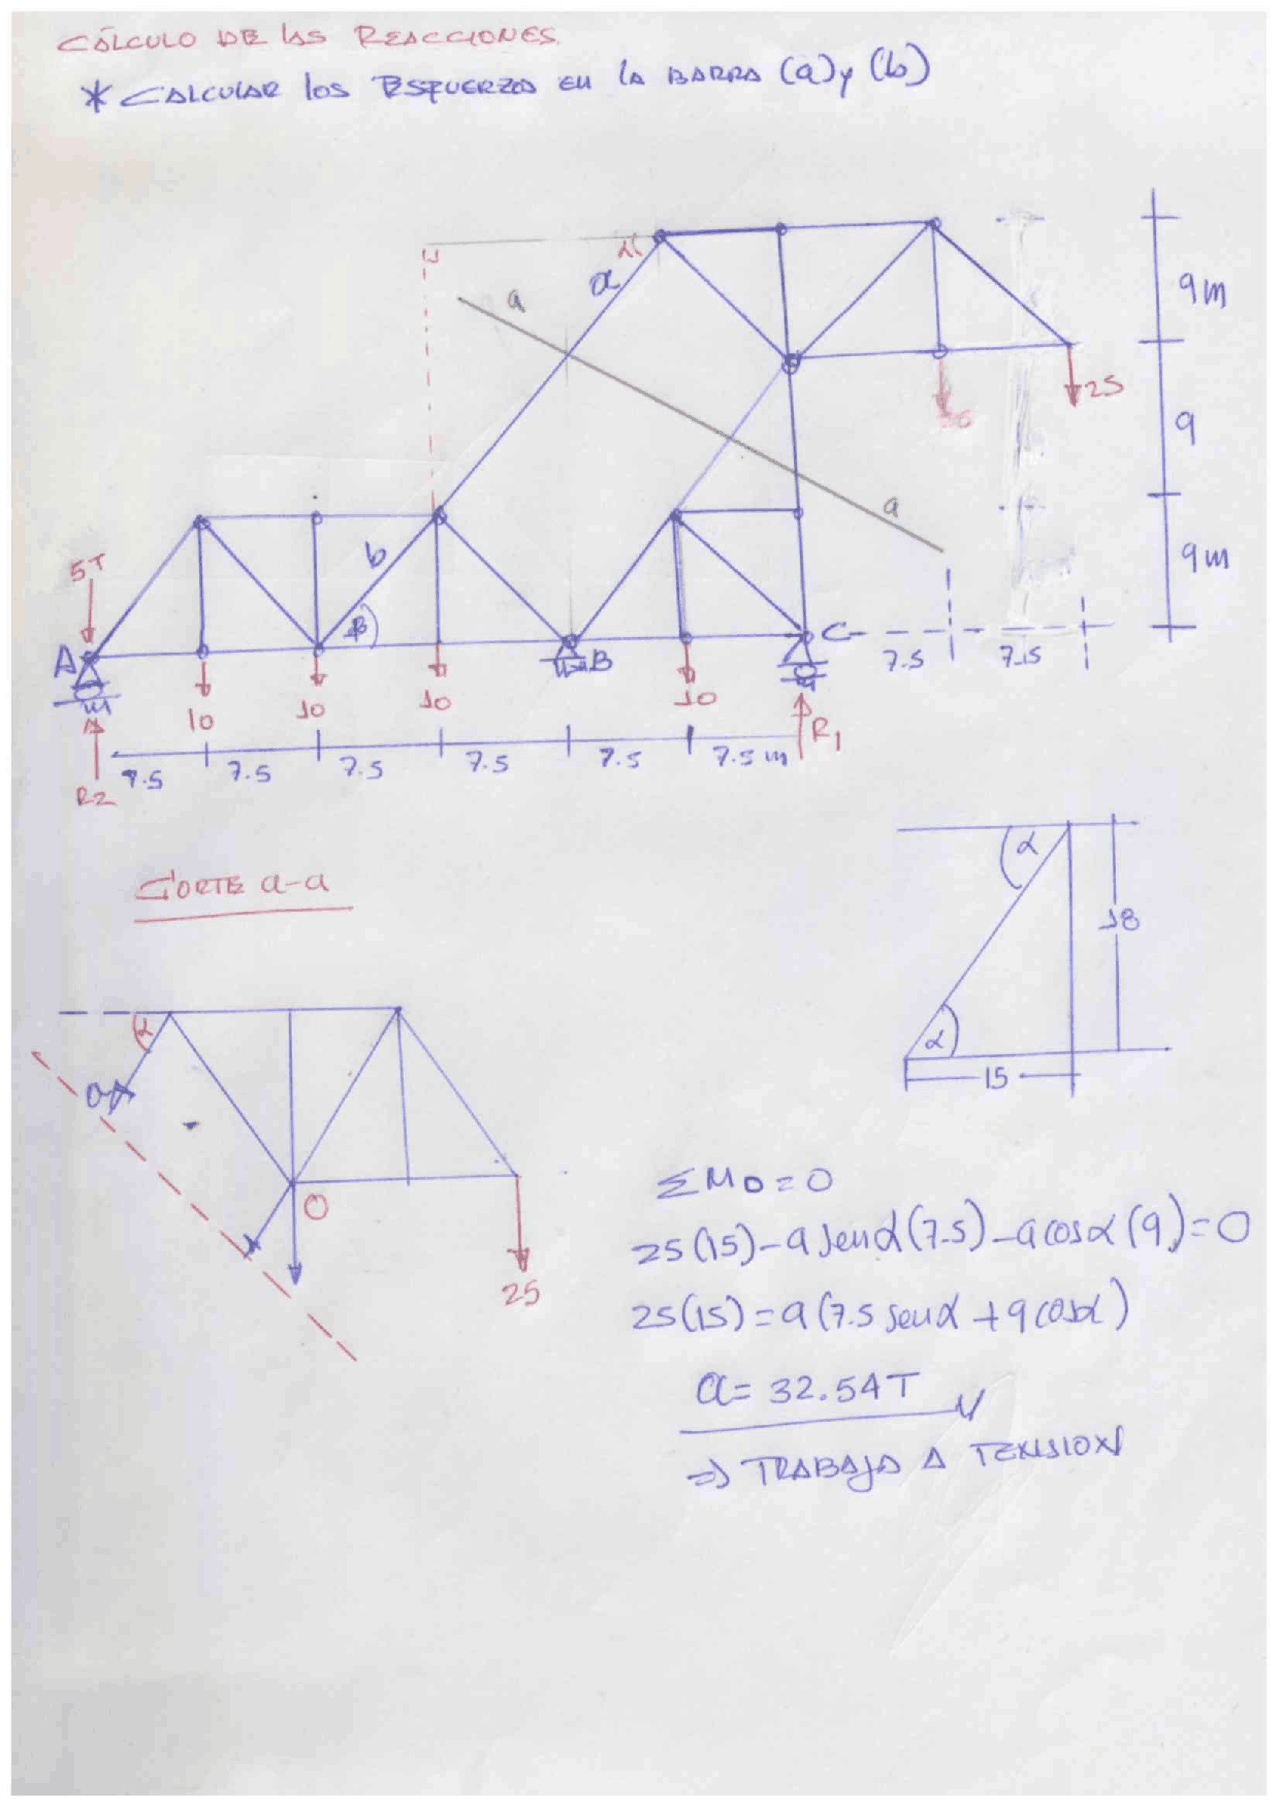 CÁLCULO DE LAS REACCIONES.
* CALCULAR LOS ESFUERZOS EN LA BARRA (a) y (b)
α
a
a
9m
25
9
a
b
5T
β
9m
A
B
C
7.5
7.5
10
10
10
10
R1
7.5
7.5
7.5
7.5
7.5
7.5 m
R2
CORTE a-a
α
18
α
15
α
a
O
25
ΣMo=0
25(15)-a senα(7.5)-a cosα(9)=0
25(15)=a(7.5 senα+9 cosα)
a= 32.54T
⇒ TRABAJA A TENSION